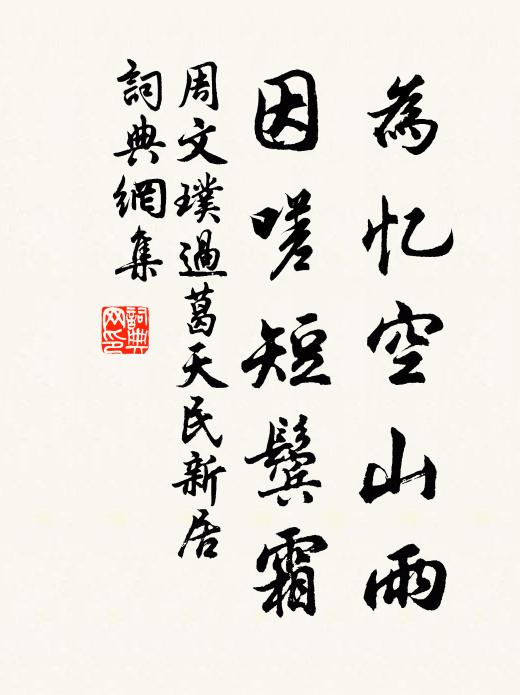 為忆空山雨
因嗟短鬓霜
周文璞過葛天民新居
詞典網集
詞典网印